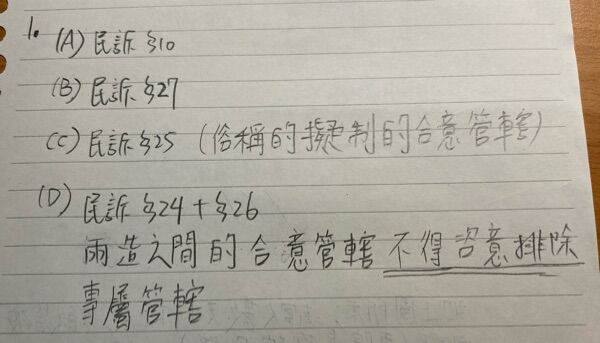 1.
(A) 民訴 §10
(B) 民訴 §27
(C) 民訴 §25 (俗稱的擬制的合意管轄)
(D) 民訴 §24 + §26
兩造之間的合意管轄 不得恣意排除
專屬管轄